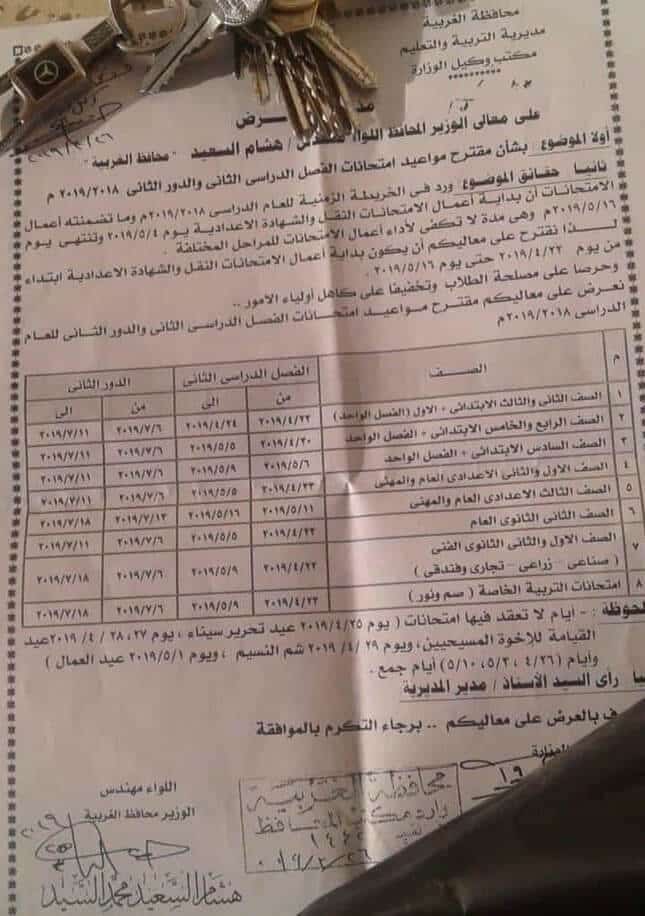 محافظة الغربية
مديرية التربية والتعليم
مكتب وكيل الوزارة
**********
عرض
على معالى الوزير المحافظ اللواء مهندس / هشام السعيد " محافظ الغربية "
أولا الموضوع : بشأن مقترح مواعيد امتحانات الفصل الدراسى الثانى والدور الثانى ٢٠١٩/٢٠١٨ م
ثانيا حقائق الموضوع : ورد فى الخريطة الزمنية للعام الدراسى ٢٠١٩/٢٠١٨م وما تضمنته أعمال
الامتحانات أن بداية أعمال الامتحانات النقل والشهادة الاعدادية يوم ٢٠١٩/٥/٤ وتنتهى يوم
٢٠١٩/٥/١٦م وهى مدة لا تكفى لأداء أعمال الامتحانات للمراحل المختلفة .
لـذا نقترح على معاليكم أن يكون بداية أعمال الامتحانات النقل والشهادة الاعدادية ابتداء
من يوم ٢٠١٩/٤/٢٢ حتى يوم ٢٠١٩/٥/١٦ .
وحرصا على مصلحة الطلاب وتخفيفا على كاهل أولياء الامور ..
نعرض على معاليكم مقترح مواعيد امتحانات الفصل الدراسى الثانى والدور الثانى للعام
الدراسى ٢٠١٩/٢٠١٨م
م الصـف الفصل الدراسى الثانى الدور الثانى
من الى من الى
١ الصف الثانى والثالث الابتدائى + الاول (الفصل الواحد) ٢٠١٩/٤/٢٢ ٢٠١٩/٤/٢٤ ٢٠١٩/٧/٦ ٢٠١٩/٧/١١
٢ الصف الرابع والخامس الابتدائى + الفصل الواحد ٢٠١٩/٤/٣٠ ٢٠١٩/٥/٥ ٢٠١٩/٧/٦ ٢٠١٩/٧/١١
٣ الصف السادس الابتدائى + الفصل الواحد ٢٠١٩/٥/٦ ٢٠١٩/٥/٩ ٢٠١٩/٧/٦ ٢٠١٩/٧/١١
٤ الصف الاول والثانى الاعدادى العام والمهنى ٢٠١٩/٤/٢٣ ٢٠١٩/٥/٥ ٢٠١٩/٧/٦ ٢٠١٩/٧/١١
٥ الصف الثالث الاعدادى العام والمهنى ٢٠١٩/٥/١١ ٢٠١٩/٥/١٦ ٢٠١٩/٧/١٣ ٢٠١٩/٧/١٨
٦ الصف الثانى الثانوى العام ٢٠١٩/٤/٢٢ ٢٠١٩/٥/٥ ٢٠١٩/٧/٦ ٢٠١٩/٧/١١
٧ الصف الاول والثانى الثانوى الفنى
( صناعى - زراعى - تجارى وفندقى ) ٢٠١٩/٤/٢٢ ٢٠١٩/٥/٩ ٢٠١٩/٧/٦ ٢٠١٩/٧/١٨
٨ امتحانات التربية الخاصة ( صم ونور ) ٢٠١٩/٤/٢٢ ٢٠١٩/٥/٩ ٢٠١٩/٧/٦ ٢٠١٩/٧/١٨
لحوظة : - ايام لا تعقد فيها امتحانات ( يوم ٢٠١٩/٤/٢٥ عيد تحرير سيناء ، يوم ٢٧، ٢٨ / ٤ /٢٠١٩ عيد
القيامة للاخوة المسيحيين، ويوم ٢٩ /٤ /٢٠١٩ شم النسيم ، ويوم ٢٠١٩/٥/١ عيد العمال )
وأيام ( ٤/٢٦ ، ٥/٣، ٥/١٠) أيام جمع .
رأى السيد الأستاذ / مدير المديرية
بالعرض على معاليكم .. برجاء التكرم بالموافقة
اللواء مهندس
الوزير محافظ الغربية
محافظة الغربية
هشام السعيد محمد السيد